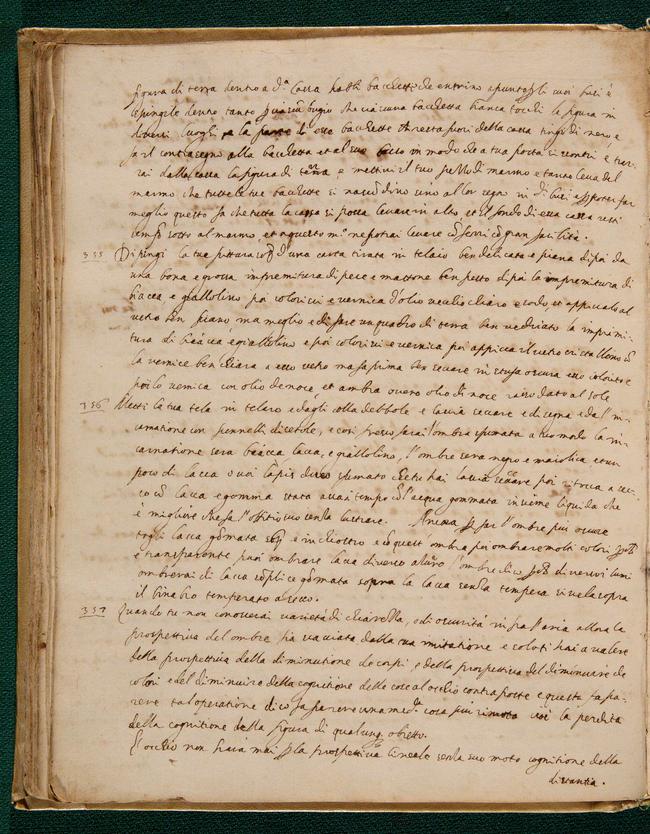 figura di terra dentro a d.ª cassa habbi bacchette che entrino apuntop li suoi busi è
spingile dentro tanto p ciascun bugio che ciascuna bacchetta bianca tocchi la figura in
diversi luoghi e la parte di esse bacchette che resta fuori della cassa tingi di nero, e
fa il contrasegno alla bacchetta et al suo buso in modo che a tua posta si scontri è trar
rai della cassa la figura di terra e mettivi il tuo pezzo di marmo e tanto leva del
marmo che tutte le tue bacchette si nascondino sino al lor segno in d.i busi
meglio questo fa che tutta la cassa si possa levare in alto, et il fondo di essa cassa resti
sempre sotto al marmo, et a questo m.º ne potrai levare cō ferri cō gran facilità.
355 Dipingi la tua pittura sop.ª d'una carta tirata in telaio ben delicata e piana di poi da
una bona e grossa imprimitura di pece e mattone ben pesto di poi la imprimitura di
biacca, e giallolino poi colorisci e vernica d'olio vecchio chiaro e sodo, et appiccalo al
vetro ben piano, ma meglio è di fare un quadro di terra ben vedriato la imprimi-
tura di biacca e giallolino e poi colorisci e vernica poi appicca il vetro cristallino cō
la vernice ben chiara a esso vetro ma fa prima ben seccare in stufa oscura esso colorito e
poi lo vernica con olio di noce et ambra overo olio di noce rassodato al sole
356 Metti la tua tela in telaro e dagli colla debbole e lascia seccare e disegna e da l'in
carnatione con pennelli di setole, e così fresco farai l'ombra sfumata a tuo modo la in
carnatione sera biacca lacca, e giallolino, l'ombre sera negro e maiolica et un
poco di lacca o voi lapis duro sfumato che tu hai lascia seccare poi ritocca a sec
co cō lacca e gomma stata assai tempo cō l'acqua gommata insieme liquida che
è migliore che fa l'offitio suo senza lustrare. Ancora p far l'ombre più oscure
togli lacca gōmata sop.ª e inchiostro e cō quest'ombra poi ombrare molti colori pche
è transparente puoi ombrare lacca diverso l'ombre dico pche diversi lumi
ombrerai di lacca sēplice gōmata sopra la lacca senza tempera si vela sopra
il cinabro temperato a secco.
357 Quando tu non conoscerai varietà di chiarezza, o di oscurità in fra l'aria allora la
prospettiva del ombre fia scacciata dalla tua imitatione e solo ti hai a valere
della prospettiva della diminutione de corpi, e della prospettiva del diminuire de
colori e del diminuire della cognitione delle cose al occhio contraposte e questa fa pa-
rere tal operatione dico fa parere una med.ª cosa più rimota cioè la perdita
della cognitione della figura di qualunq. obietto.
L'occhio non havra mai p la prospettiva lineale senza suo moto cognitione della
distantia.